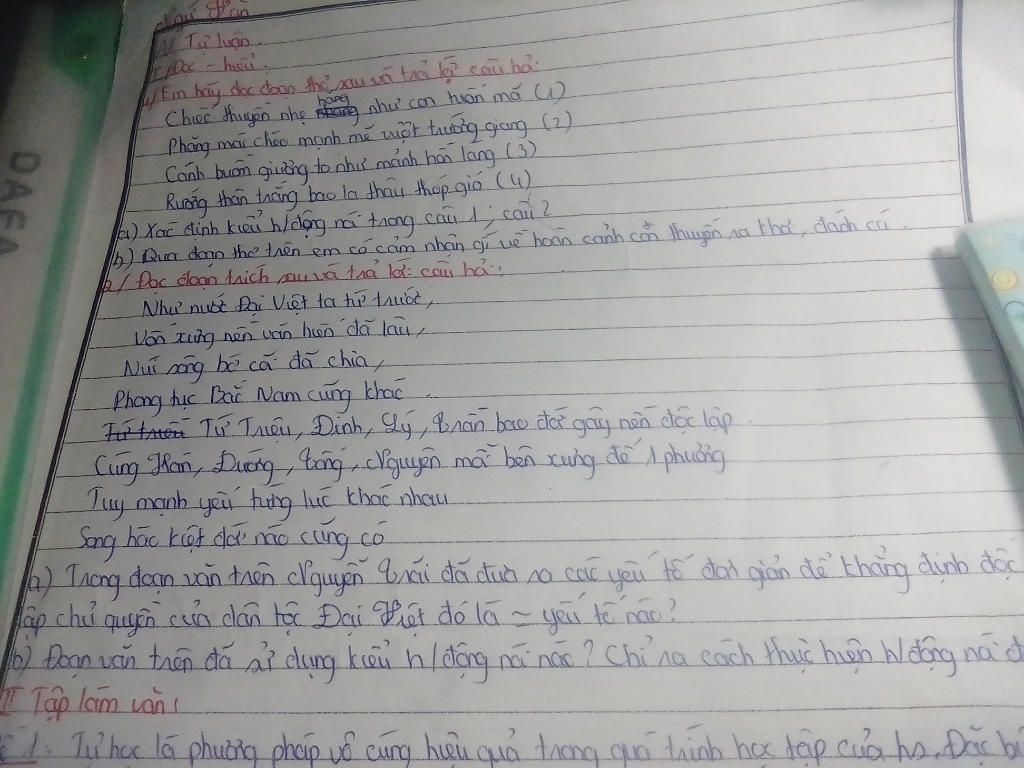 Ngữ Văn
A/ Tự luận
I/ Đọc - hiểu.
1/ Em hãy đọc đoạn thơ sau và trả lời câu hỏi:
Chiếc thuyền nhẹ hăng như con tuấn mã (1)
Phăng mái chèo mạnh mẽ vượt trường giang (2)
Cánh buồm giương to như mảnh hồn làng (3)
Rướng thân trắng bao la thâu thóp gió (4)
a) Xác định kiểu h/động nói trong câu 1, câu 2
b) Qua đoạn thơ trên em có cảm nhận gì về hoàn cảnh con thuyền ra khơi, đánh cá.
2/ Đọc đoạn trích sau và trả lời câu hỏi:
Như nước Đại Việt ta từ trước,
Vốn xưng nền văn hiến đã lâu,
Núi sông bờ cõi đã chia,
Phong tục Bắc Nam cũng khác
Từ Triệu, Đinh, Lý, Trần bao đời gây nền độc lập
Cùng Hán, Đường, Tống, Nguyên mỗi bên xưng đế 1 phương
Tuy mạnh yếu từng lúc khác nhau
Song hào kiệt đời nào cũng có
a) Trong đoạn văn trên Nguyễn Trãi đã đưa ra các yếu tố đơn giản để khẳng định độc
lập chủ quyền của dân tộc Đại Việt đó là ~ yếu tố nào?
b) Đoạn văn trên đã sử dụng kiểu h/động nói nào? Chỉ ra cách thực hiện h/động nói
II Tập làm văn:
1: Tự học là phương pháp vô cùng hiệu quả trong quá trình học tập của hs. Đặc